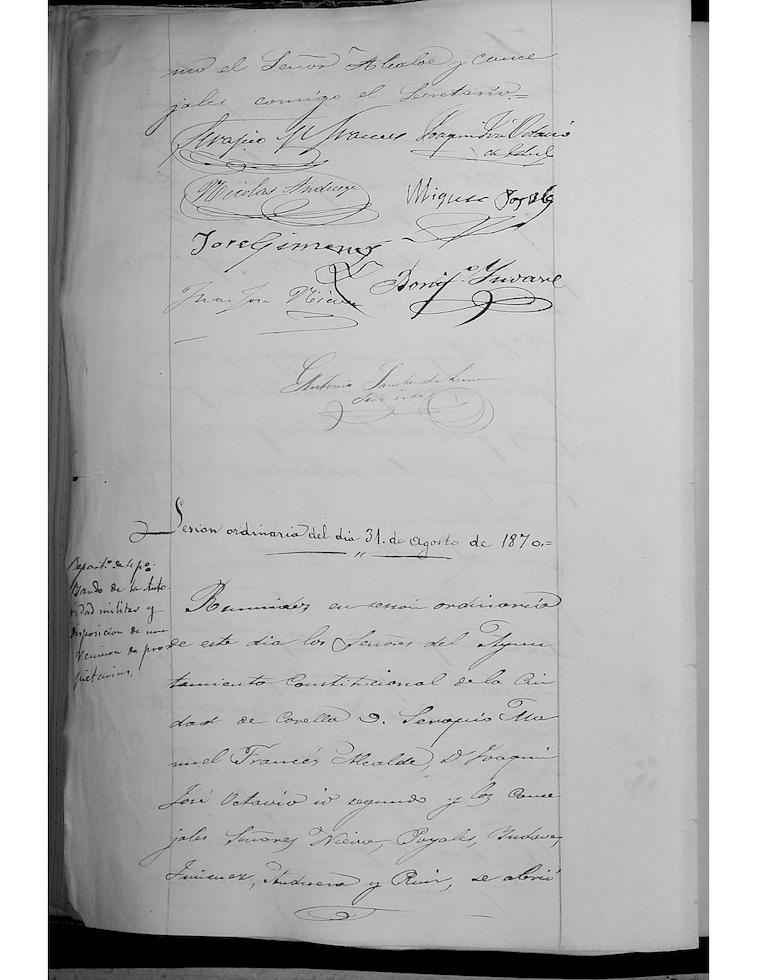 mo el Señor Alcalde y conce
jales comigo el Secretario=
Serapio Ml Frances Joaquin José Octavio
Nicolas Anduega Miguel
Jose Gimenez
Juan Jose Bonifo Yudare
Antonio Sanchez de
Sesion ordinaria del dia 31. de Agosto de 1870.=
"
de la Auto-
ridad militar y
disposicion de una
reunion de pro
pietarios.
Reunidos en sesion ordinaria
de este dia los Señores del Ayun
tamiento Constitucional de la Ciu
dad de Corella D. Serapio Ma
nuel Francés Alcalde, D. Joaquin
José Octavio id segundo y los Conce
jales Señores Nieva, Poyales, Yudare,
Jimenez, Anduera y Ruiz, se abrió